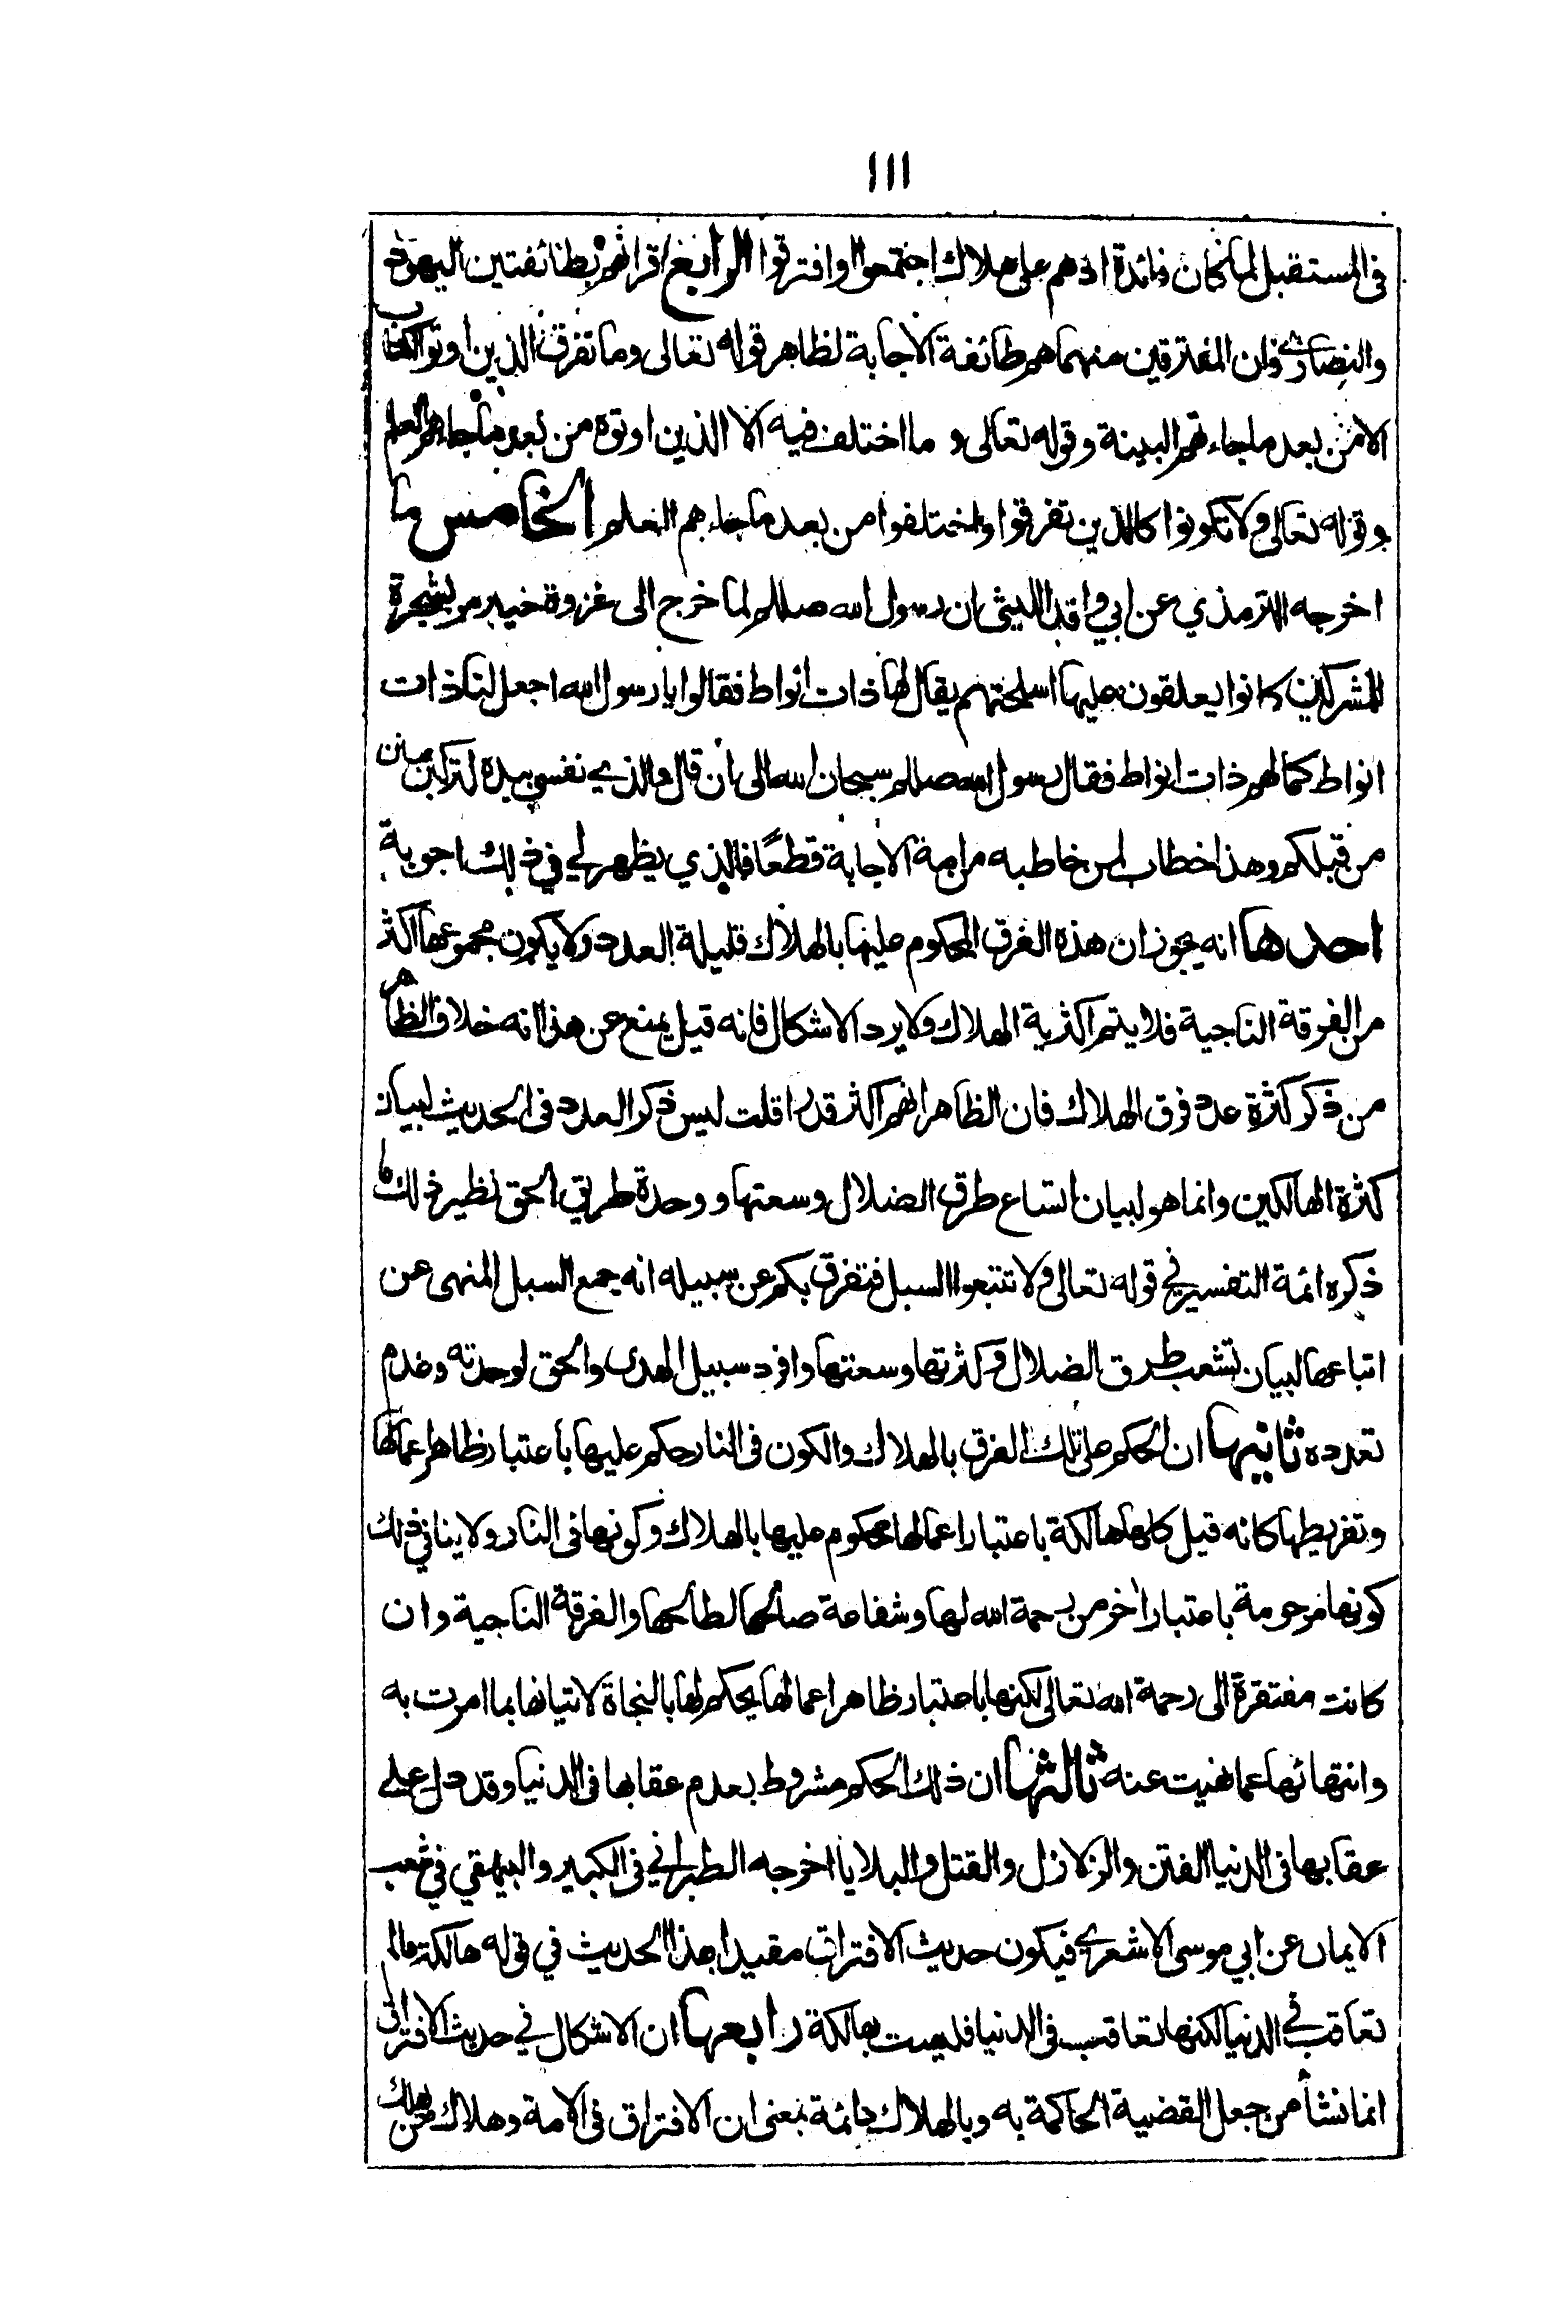 ١١١
فى المستقبل لما كان فائدة اذ هم على هلاك اجتمعوا او افترقوا الرابع اقرانهم بطائفتين اليهود
والنصارى فان المفترقين منهما هم طائفة الاجابة لظاهر قوله تعالى وما تفرق الذين اوتوا الكتاب
الا من بعد ما جاءتهم البينة وقوله تعالى و ما اختلف فيه الا الذين اوتوه من بعد ما جاءهم العلم
وقوله تعالى ولا تكونوا كالذين تفرقوا واختلفوا من بعد ما جاءهم العلم الخامس ما
اخرجه الترمذي عن ابي واقد الليثى ان رسول الله صللم لما خرج الى غزوة خيبر مر بشجرة
للمشركين كانوا يعلقون عليها اسلحتهم يقال لها ذات انواط فقالوا يا رسول الله اجعل لنا ذات
انواط كما لهم ذات انواط فقال رسول الله صللم سبحان الله الى ان قال والذي نفسي بيده لتركبن سنن
من قبلكم وهذا خطاب لمن خاطبه من امة الاجابة قطعًا فالذي يظهر لي في ذلك اجوبة
احدها انه يجوز ان هذه الفرق المحكوم عليها بالهلاك قليلة العدد ولا يكون مجموعها اكثر
من الفرقة الناجية فلا يتم اكثرية الهلاك ولا يرد الاشكال فانه قيل يمنع عن هذا انه خلاف الظاهر
من ذكر كثرة عدد فرق الهلاك فان الظاهر انهم اكثر قدرا قلت ليس ذكر العدد فى الحديث لبيان
كثرة الهالكين وانما هو لبيان اتساع طرق الضلال وسعتها و وحدة طريق الحق نظير ذلك ما
ذكره ائمة التفسير في قوله تعالى ولا تتبعوا السبل فتفرق بكم عن سبيله انه جمع السبل المنهى عن
اتباعها لبيان تشعب طرق الضلال وكثرتها وسعتها وافرد سبيل الهدى والحق لوحدته وعدم
تعدده ثانيها ان الحكم على تلك الفرق بالهلاك والكون فى النار حكم عليها باعتبار ظاهر اعمالها
وتفريطها كانه قيل كلها هالكة باعتبار اعمالها محكوم عليها بالهلاك وكونها فى النار ولا ينافي ذلك
كونها مرحومة باعتبار اخر من رحمة الله لها وشفاعة صالحها لطالحها والفرقة الناجية وان
كانت مفتقرة الى رحمة الله تعالى لكنها باعتبار ظاهر اعمالها يحكم لها بالنجاة لاتيانها بما امرت به
وانتهائها عما نهيت عنه ثالثها ان ذلك الحكم مشروط بعدم عقابها فى الدنيا وقد دل على
عقابها فى الدنيا الفتن والزلازل والقتل والبلايا اخرجه الطبراني فى الكبير والبيهقي في شعب
الايمان عن ابي موسى الاشعري فيكون حديث الافتراق مقيدا بهذا الحديث في قوله هالكة مالم
تعاقب في الدنيا لكنها تعاقب فى الدنيا فليست بهالكة رابعها ان الاشكال في حديث الافتراق
انما نشأ من جعل القضية الحاكمة به وبالهلاك دائمة بمعنى ان الافتراق فى الامة وهلاك من هلك